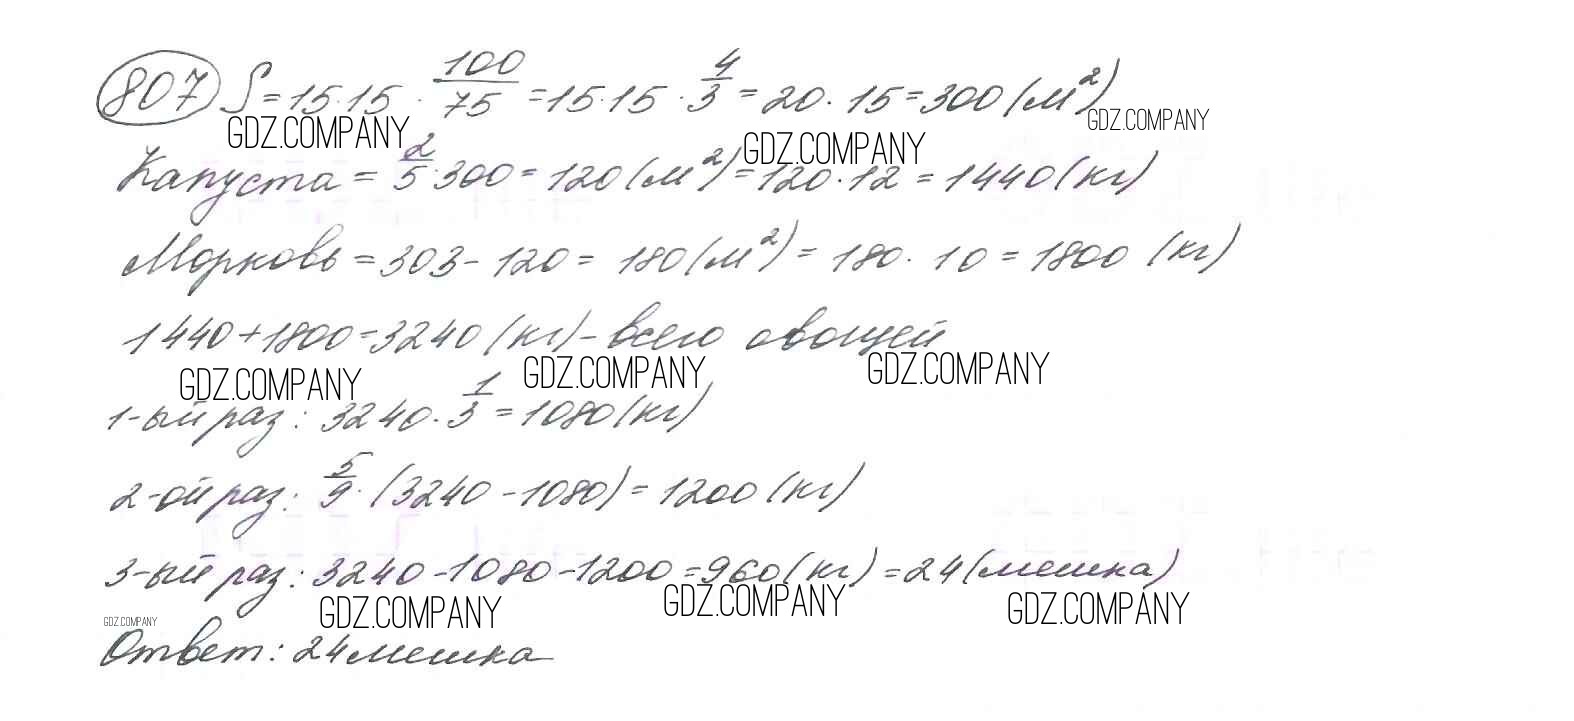 807 S = 15·15 · 100/75 = 15·15 · 4/3 = 20 · 15 = 300 (м²)
GDZ.COMPANY GDZ.COMPANY GDZ.COMPANY
Капуста = 2/5 · 300 = 120 (м²) = 120 · 12 = 1440 (кг)
Морковь = 303 - 120 = 180 (м²) = 180 · 10 = 1800 (кг)
1440 + 1800 = 3240 (кг) - всего овощей
GDZ.COMPANY GDZ.COMPANY GDZ.COMPANY
1-ый раз: 3240 · 1/3 = 1080 (кг)
2-ой раз: 5/9 · (3240 - 1080) = 1200 (кг)
3-ый раз: 3240 - 1080 - 1200 = 960 (кг) = 24 (мешка)
GDZ.COMPANY GDZ.COMPANY GDZ.COMPANY GDZ.COMPANY
Ответ: 24 мешка